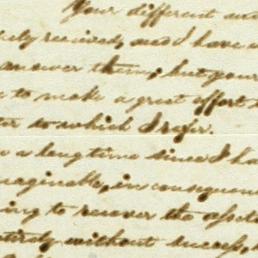 Your different
received, and I have
answer them, but your
to make a great effort
to which I refer.
a long time since I ha
maginable, in consequen
ing to recover the affect
entirely without success,